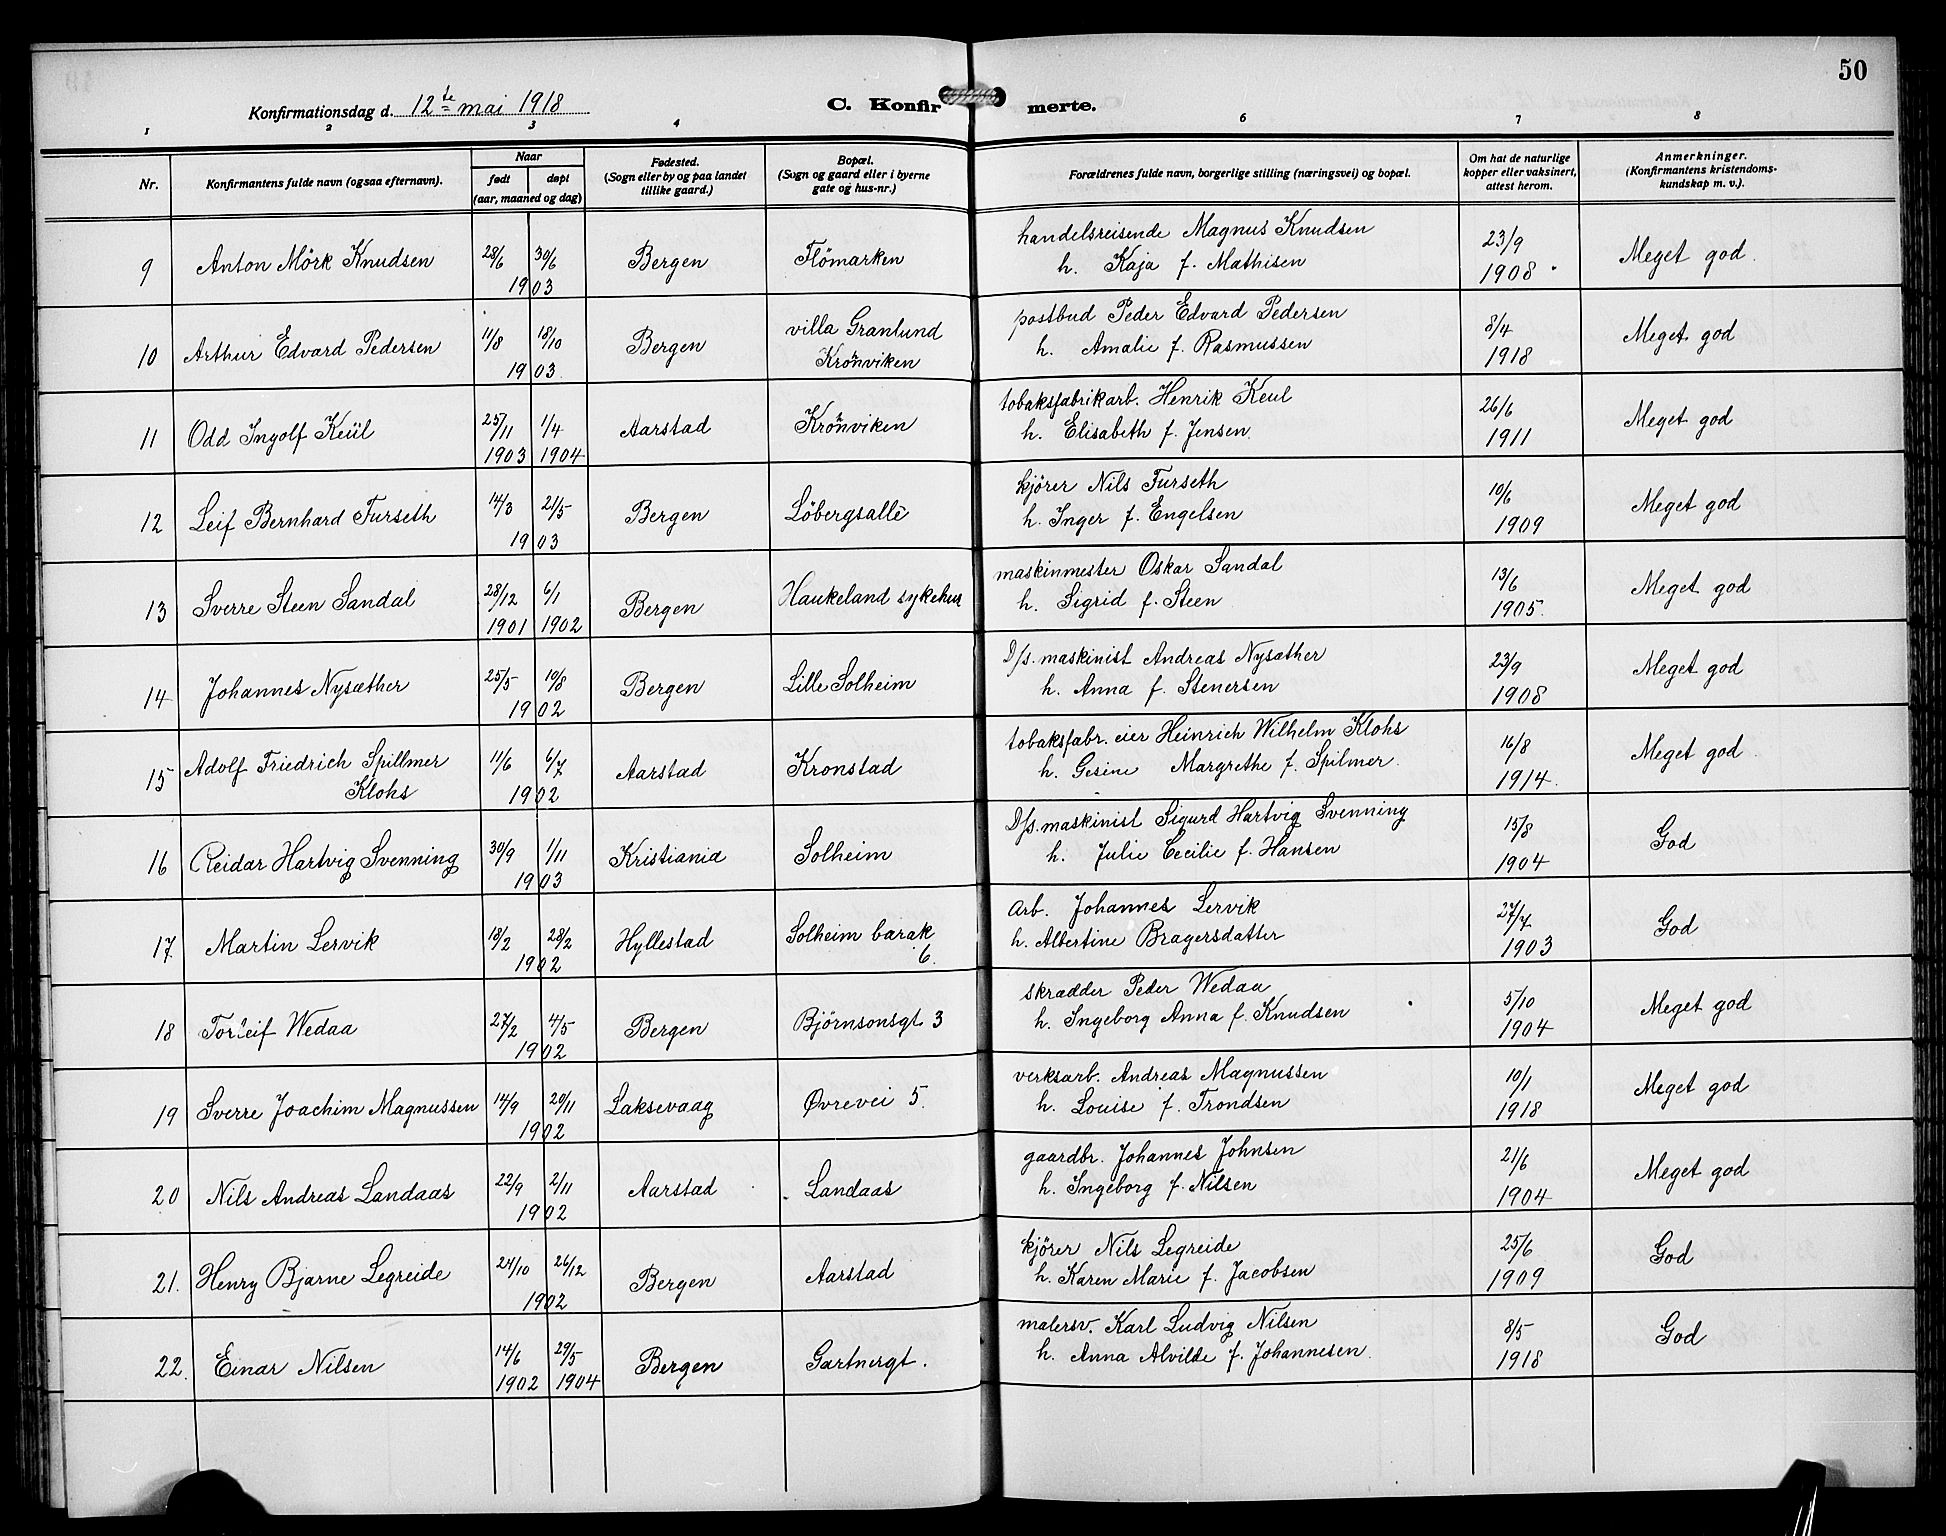 50
Konfirmationsdag d. 12te mai 1918
C. Konfirmerte.
1 2 3 4 6 7 8
Nr.
Konfirmantens fulde navn (ogsaa efternavn).
Naar
født døpt
(aar, maaned og dag)
Fødested.
(Sogn eller by og paa landet
tillike gaard.)
Bopæl.
(Sogn og gaard eller i byerne
gate og hus-nr.)
Forældrenes fulde navn, borgerlige stilling (næringsvei) og bopæl.
Om hat de naturlige
kopper eller vaksinert,
attest herom.
Anmerkninger.
(Konfirmantens kristendoms-
kundskap m. v.).
handelsreisende Magnus Knudsen
9 Anton Mörk Knudsen 28/6 30/6 Bergen Flömarken h. Kaja f. Mathisen 23/9 Meget god.
1903 1908.
postbud Peder Edvard Pedersen
10 Arthur Edvard Pedersen 11/8 18/10 Bergen villa Granlund h. Amalie f. Rasmussen 8/4 Meget god
1903. Kronviken 1918
tobaksfabrikarb. Henrik Keul
11 Odd Ingolf Keül 25/11 1/4 Aarstad Kronviken h. Elisabeth f. Jensen. 26/6 Meget god
1903 1904 1911
kjörer Nils Furseth
12 Leif Bernhard Furseth 14/3 21/5 Bergen Löbergsallè h. Inger f. Engelsen 10/6 Meget god
1903 1909
maskinmester Oskar Sandal
13 Sverre Steen Sandal 28/12 6/1 Bergen Haukeland sykehus h. Sigrid f. Steen 13/6 Meget god
1901 1902 1905.
D/s. maskinist Andreas Nysæther
14 Johannes Nysæther 25/5 10/8 Bergen Lille Solheim h. Anna f. Stenersen 23/9 Meget god
1902 1908
tobaksfabr. eier Heinrich Wilhelm Klohs
15 Adolf Friedrich Spillmer 11/6 6/7 Aarstad Kronstad h. Gesine Margrethe f. Spilmer. 16/8 Meget god
Klohs 1902 1914.
D/s. maskinist Sigurd Hartvig Svenning
16 Reidar Hartvig Svenning 30/9 1/11 Kristiania Solheim h. Julie Cecilie f. Hansen 15/8 God
1903 1904
arb. Johannes Lervik
17 Martin Lervik 18/2 28/2 Hyllestad Solheim barak h. Albertine Bragersdatter 27/7 God
1902 6. 1903
skrædder Peder Wedaa
18 Torleif Wedaa 27/2 4/5 Bergen Björnsonsgt 3 h. Ingeborg Anna f. Knudsen 5/10 Meget god
1902 1904
verksarb. Andreas Magnussen
19 Sverre Joachim Magnussen 14/9 20/11 Laksevaag Øvrevei 5. h. Louise f. Trondsen 10/1 Meget god
1902 1918
gaardbr. Johannes Johnsen
20 Nils Andreas Landaas 22/9 2/11 Aarstad Landaas h. Ingeborg f. Nilsen 21/6 Meget god
1902 1904
kjörer Nils Legreide
21. Henry Bjarne Legreide 24/10 26/12 Bergen Aarstad h. Karen Marie f. Jacobsen 25/6 God
1902 1909
malersv. Karl Ludvig Nilsen
22. Einar Nilsen 14/6 29/5 Bergen Gartnergt. h. Anna Alvilde f. Johannesen. 8/5 God
1902 1904 1918